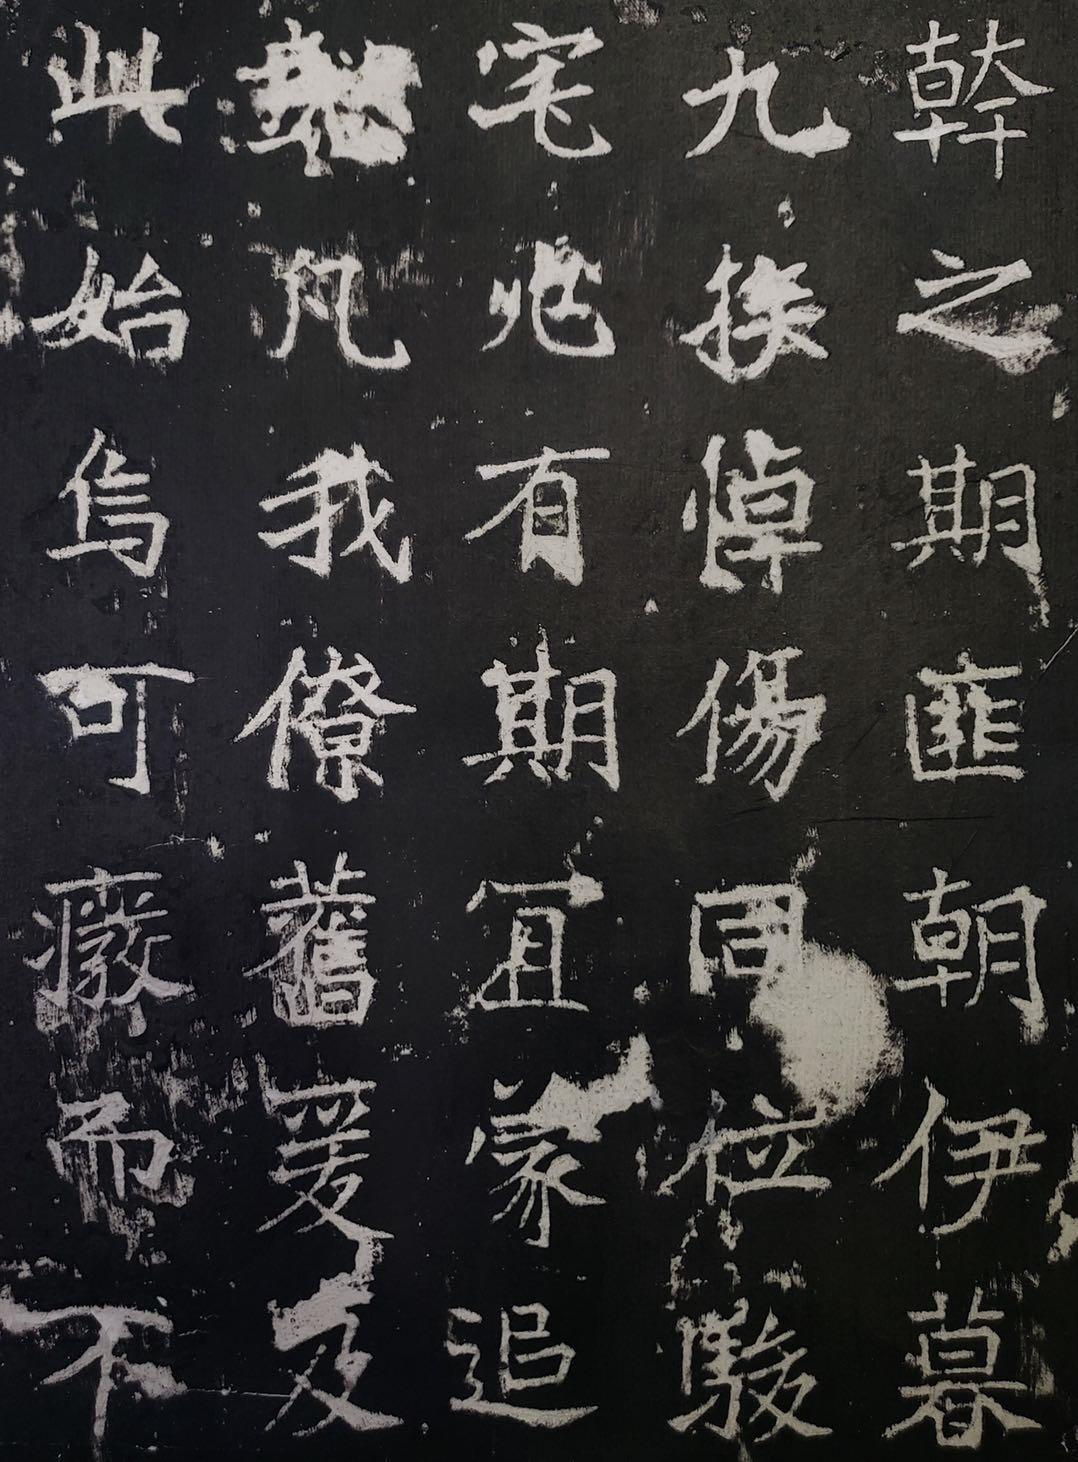 幹之期匪朝伊暮
九族悼傷同位駿
宅兆有期宜蒙追
凡我僚舊爰及
此始烏可癈而不